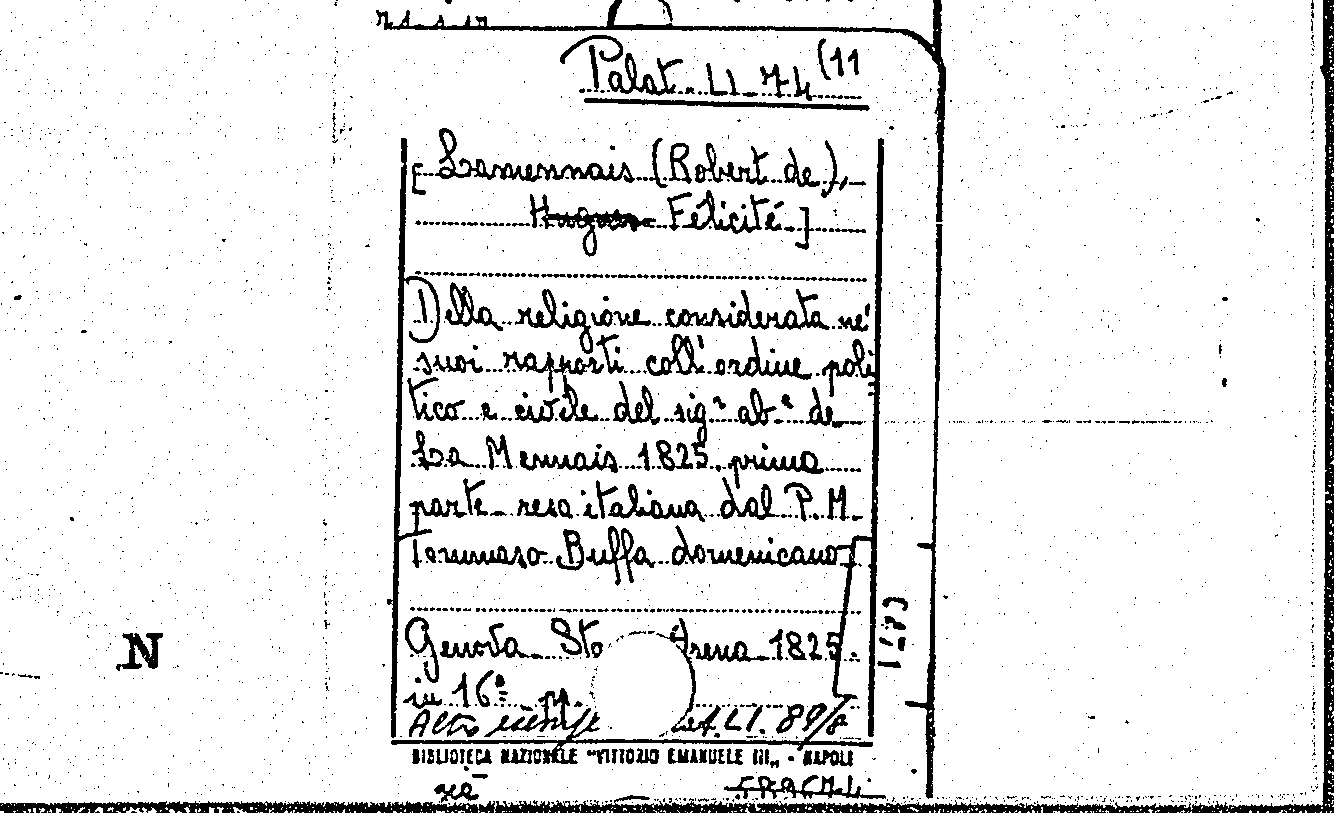 Palat. LI_74 (11
[Lamennais (Robert de),
Hugues Félicité.]
Della religione considerata ne'
suoi rapporti coll'ordine poli
tico e civile del sig.r ab.e de
La Mennais 1825. prima
parte resa italiana dal P. M.
Tommaso Buffa domenicano]
Genova. Sta Arena 1825.
in 16° pp.
Altro LI. 89/8
BIBLIOTECA NAZIONALE "VITTORIO EMANUELE III" - NAPOLI
N